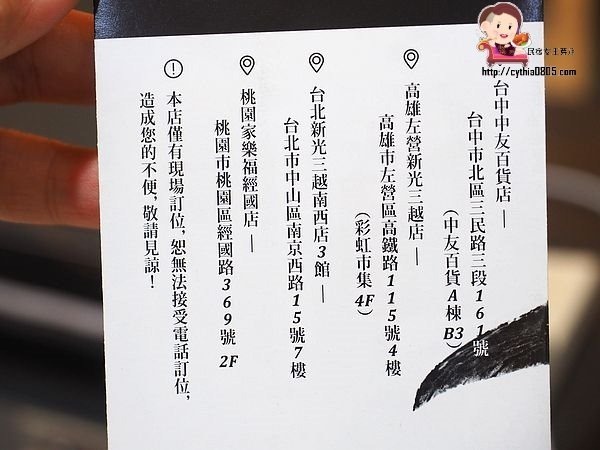 台中中友百貨店 —
台中市北區三民路三段161號
(中友百貨A棟 B3)
高雄左營新光三越店 —
高雄市左營區高鐵路115號4樓
(彩虹市集 4F)
台北新光三越南西店3館 —
台北市中山區南京西路15號7樓
桃園家樂福經國店 —
桃園市桃園區經國路369號 2F
本店僅有現場訂位,恕無法接受電話訂位,
造成您的不便,敬請見諒!
http://cythia0805.com